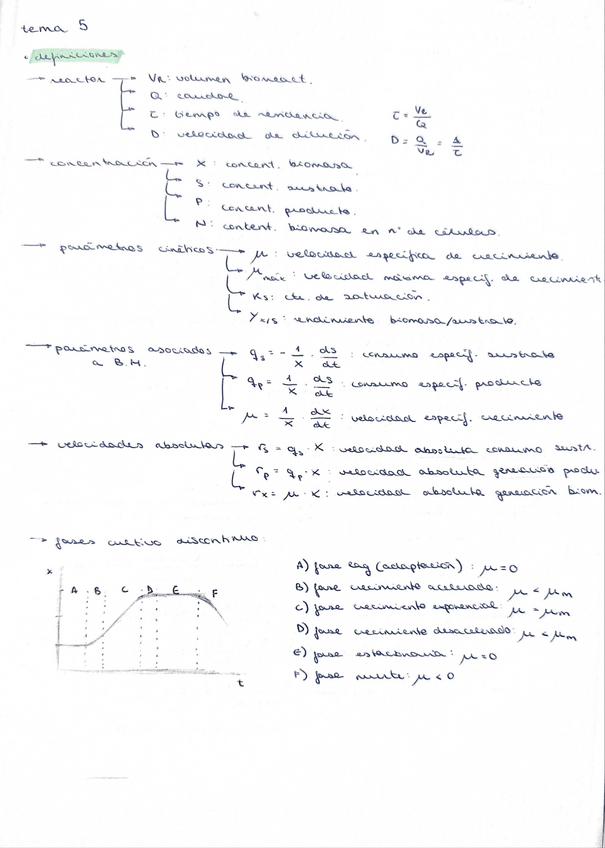 tema 5
· definiciones
→ reactor → VR: volumen bioreact.
→ Q: caudal.
→ τ: tiempo de residencia. τ = VR/Q
→ D: velocidad de dilución. D = Q/VR = 1/τ
→ concentración → X: concent. biomasa.
→ S: concent. sustrato.
→ P: concent. producto.
→ N: content. biomasa en nº de células.
→ parámetros cinéticos → μ: velocidad específica de crecimiento.
→ μmáx: velocidad máxima especif. de crecimient
→ Ks: cte. de saturación.
→ Yx/s: rendimiento biomasa/sustrato.
→ parámetros asociados → qs = - 1/X · ds/dt : consumo especif. sustrato
a B.M. → qp = 1/X · ds/dt : consumo especif. producto
→ μ = 1/X · dx/dt : velocidad especif. crecimiento
→ velocidades absolutas → rs = qs · X : velocidad absoluta consumo sustr.
→ rp = qp · X : velocidad absoluta generación produ
→ rx = μ · X : velocidad absoluta generación biom.
→ fases cultivo discontinuo:
x
A B C D E F
t
A) fase lag (adaptación) : μ = 0
B) fase crecimiento acelerado: μ < μm
C) fase crecimiento exponencial: μ = μm
D) fase crecimiento desacelerado: μ < μm
E) fase estacionaria: μ = 0
F) fase muerte: μ < 0